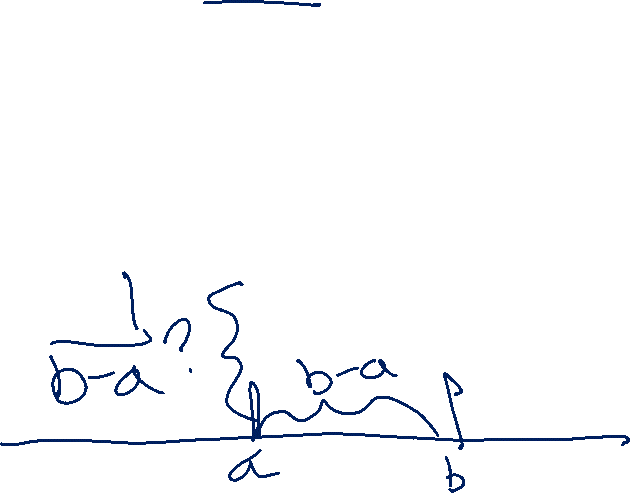 1
b-a ?
b-a
a b